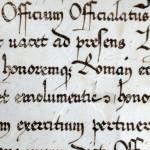 Officium Officialatus
et uacet ad presens
honoremq; Roman
et emolumentis, hono
m exercitium pertiner